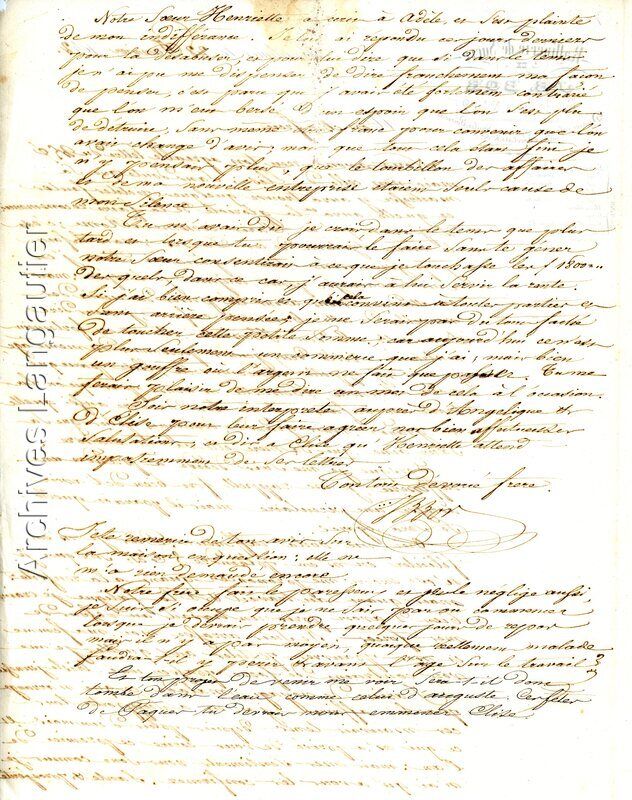 Notre Sœur Henriette a écrit à Adèle, et s'est plainte
de mon indifférence. Je lui ai repondu ces jours derniers
pour la désabuser, et pour lui dire que si dans le tems
je n'ai pu me dispenser de dire franchement ma façon
de penser, c'est parce que j'avais été fortement contrarié
que l'on m'eut bercé d'un espoir que l'on s'est plu
de détruire, sans même être franc pour convenir que l'on
avait changé d'avis, mais que tout cela étant fini je
n'y pensais plus, que le tourbillon des affaires
et de ma nouvelle entreprise étaient seuls cause de
mon silence.
Tu m'avais dit je crois dans le tems que plus
tard et lorsque tu pourrais le faire sans te gêner
notre Sœur consentirait à ce que je touchasse les f 1800
desquels, dans ce cas, j'aurais à lui servir la rente.
Si j'ai bien compris et que cela convienne à toutes parties et
sans arrière pensée, je ne serais pas du tout faché
de toucher cette petite somme, car aujourd'hui ce n'est
plus seulement un commerce que j'ai, mais bien
un gouffre où l'argent ne fait que passer. Tu me
ferais plaisir de me dire un mot de cela à l'occasion.
Sois notre interprète auprès d'Angelique et
d'Elise pour leur faire agréer nos bien affectueuses
salutations, et dis à Elise qu'Henriette attend
impatiemment de ses lettres
Ton tout dévoué frère.
Je te remercie de ton avis sur
la maison en question: elle ne
m'a rien demandé encore
Notre frère fait le paresseux et je le neglige aussi,
je suis si occupé que je ne sais par où commencer
lorsque je devrais prendre quelques jours de repos
mais il n'y a pas moyen, quoique réellement malade
faudrait-il y périr avant l'age sur le travail
Et ton projet de venir me voir sera-t-il donc
tombé dans l'eau comme celui d'auguste. Ces fêtes
de Paques tu devrais nous emmener Elise
Archives Langautier